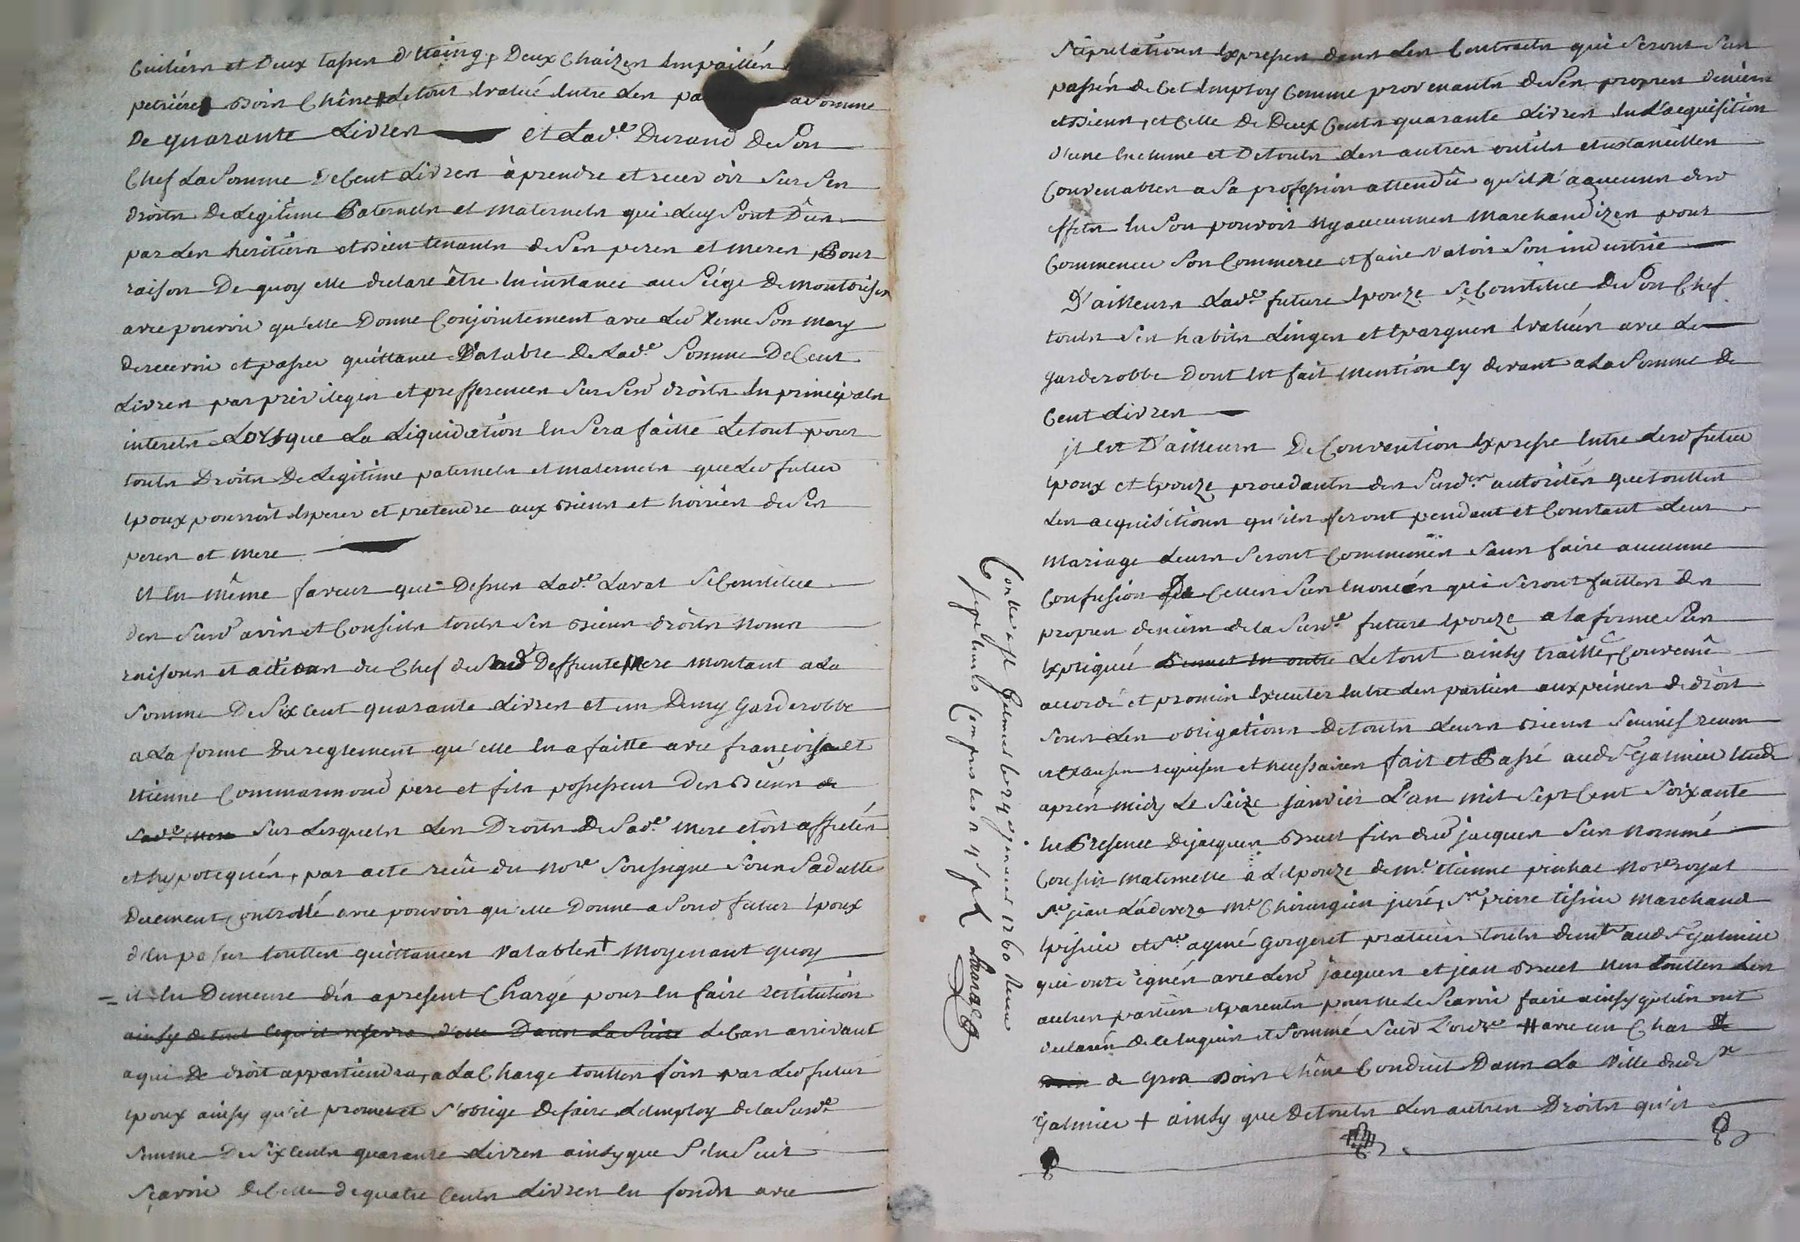 Cuilières et deux tasses d'Etaing, Deux Chaizes Empaillés
petrière Bois Chêne Letout Evalué Entre les pa Lasomme
De quarante Livres et Lad.e Durand De Son
Chef La Somme De Cent Livres à prendre et recevoir Sur Ses
droits De Legitime Paternels et maternels qui Luy Sont Dûes
par Les heritiers et Bien tenants de Ses peres et meres, Pour
raison De quoy elle declare être En instance au Siége De montbrison
avec pouvoir qu'elle Donne Conjointement avec Led. Son Mary
De recevoir et passer quittance Valable De Lad.e Somme De Cent
Livres par privileges et prefferences Sur Sesd droits En principals
interets Lorsque La Liquidation En Sera faitte Letout pour
touts Droits De Legitime paternels et maternels que Led futur
Epoux pourroit Esperer et pretendre aux Biens et hoiries de Ses
peres et mere
Et En même faveur que Dessus Lad.e Lavat Se Constitue
des Susd avis et Conseils touts Ses Biens Droits Noms
raisons et actions du Chef de Sad Deffunte Mere montant a La
Somme De Six Cent quarante Livres et un Demy Garderobbe
a La forme Du reglement qu'elle En a faitte avec françois et
Etienne Commarmond pere et fils possesseurs Des Biens de
Sad.e Mere Sur Lesquels Les Droits De Sad.e mere etoit affectés
et hypotequés, par acte reçû du No.re Soussigné Sous Sa datte
Duement Controllé avec pouvoir qu'elle Donne a Sond futur Epoux
d'En passer touttes quittances Valables + Moyenant quoy
il En Demeure Dés apresent Chargé pour En faire restitution
ainsy de tout Cequ'il D'elle Dans La Suitte Le Cas arrivant
a qui De droit appartiendra, a La Charge touttes fois par Led futur
Epoux ainsy qu'il promet et S'oblige De faire L'Employ de la Susd.e
Somme De Six Cents quarante Livres ainsy que S'En Suit
Sçavoir De Celle de quatre Cents Livres En fonds avec
Stipulations Expresses dans Les Contracts qui Seront Sur
passés de Cet Employ Comme provenants De Ses propres deniers
et Biens, et Celle De Deux Cents quarante Livres En L'acquisition
d'une Enclume et De touts Les autres outils et ustancilles
Convenables a Sa profession attendû qu'il N'a aucuns des
Effets En Son pouvoir Ny aucunnes Marchandizes pour
Commencer Son Commerce et faire Valoir Son industrie
D'ailleurs Lad.e future Epouze Se Constitue De Son Chef
touts Ses habits Linges et Epargnes Evalués avec Le
Garderobbe Dont Est fait Mention Cy devant a La Somme De
Cent Livres
il Est D'ailleurs De Convention Expresse Entre Lesd futur
Epoux et Epouze procedants des Susd.es autorités que touttes
Les acquisitions qu'ils feront pendant et Constant Leur
Mariage Leurs Seront Communes Sans faire aucunne
Confusion De Celles Sus Enoncés qui Seront faittes Des
propres deniers de la Susd.e future Epouze a la forme Sus
Expliquée Letout ainsy traitté, Convenû
accordé et promis Executer Entre Les parties aux peines de droit
Sous Les obligations De touts Leurs Biens Soumis renon
et Clauses requises et necessaires fait et Passé aud S.t Galmier Etude
après midy Le Seize janvier L'an mil Sept Cent Soixante
En Presence De jacques Bruel fils dud jacques Sus nommé
Cousin maternelle à L'Epouze de M.e Etienne No.re royal
S.r jean Ladeveze M.e Chirurgien juré, S.r pierre tissier Marchand
Epicier et S.r aymé Gorgeret praticien touts dem.ts aud S.t Galmier
qui ont Signés avec Lesd jacques et jean Bruel Non touttes Les
autres parties et parents pour Ne Le Sçavoir faire ainsy qu'ils ont
declarés De ce Enquis et Sommé Sur L'ord.ce # avec un Char
de Gros Bois Chêne Conduit Dans La Ville dud S.t
Galmier + ainsy que De touts Les autres Droits qu'il
Controllé a S.t Galmier le 24e janvier 1760 Reçu
Sept Livres Compris les n s.f.d.